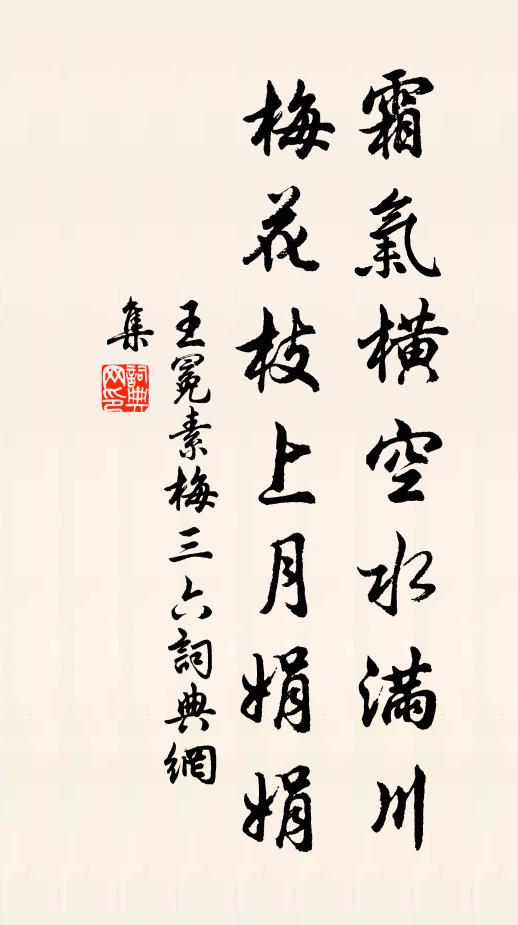 霜氣橫空水滿川
梅花枝上月娟娟
王冕素梅三六詞典網
集
詞典網印